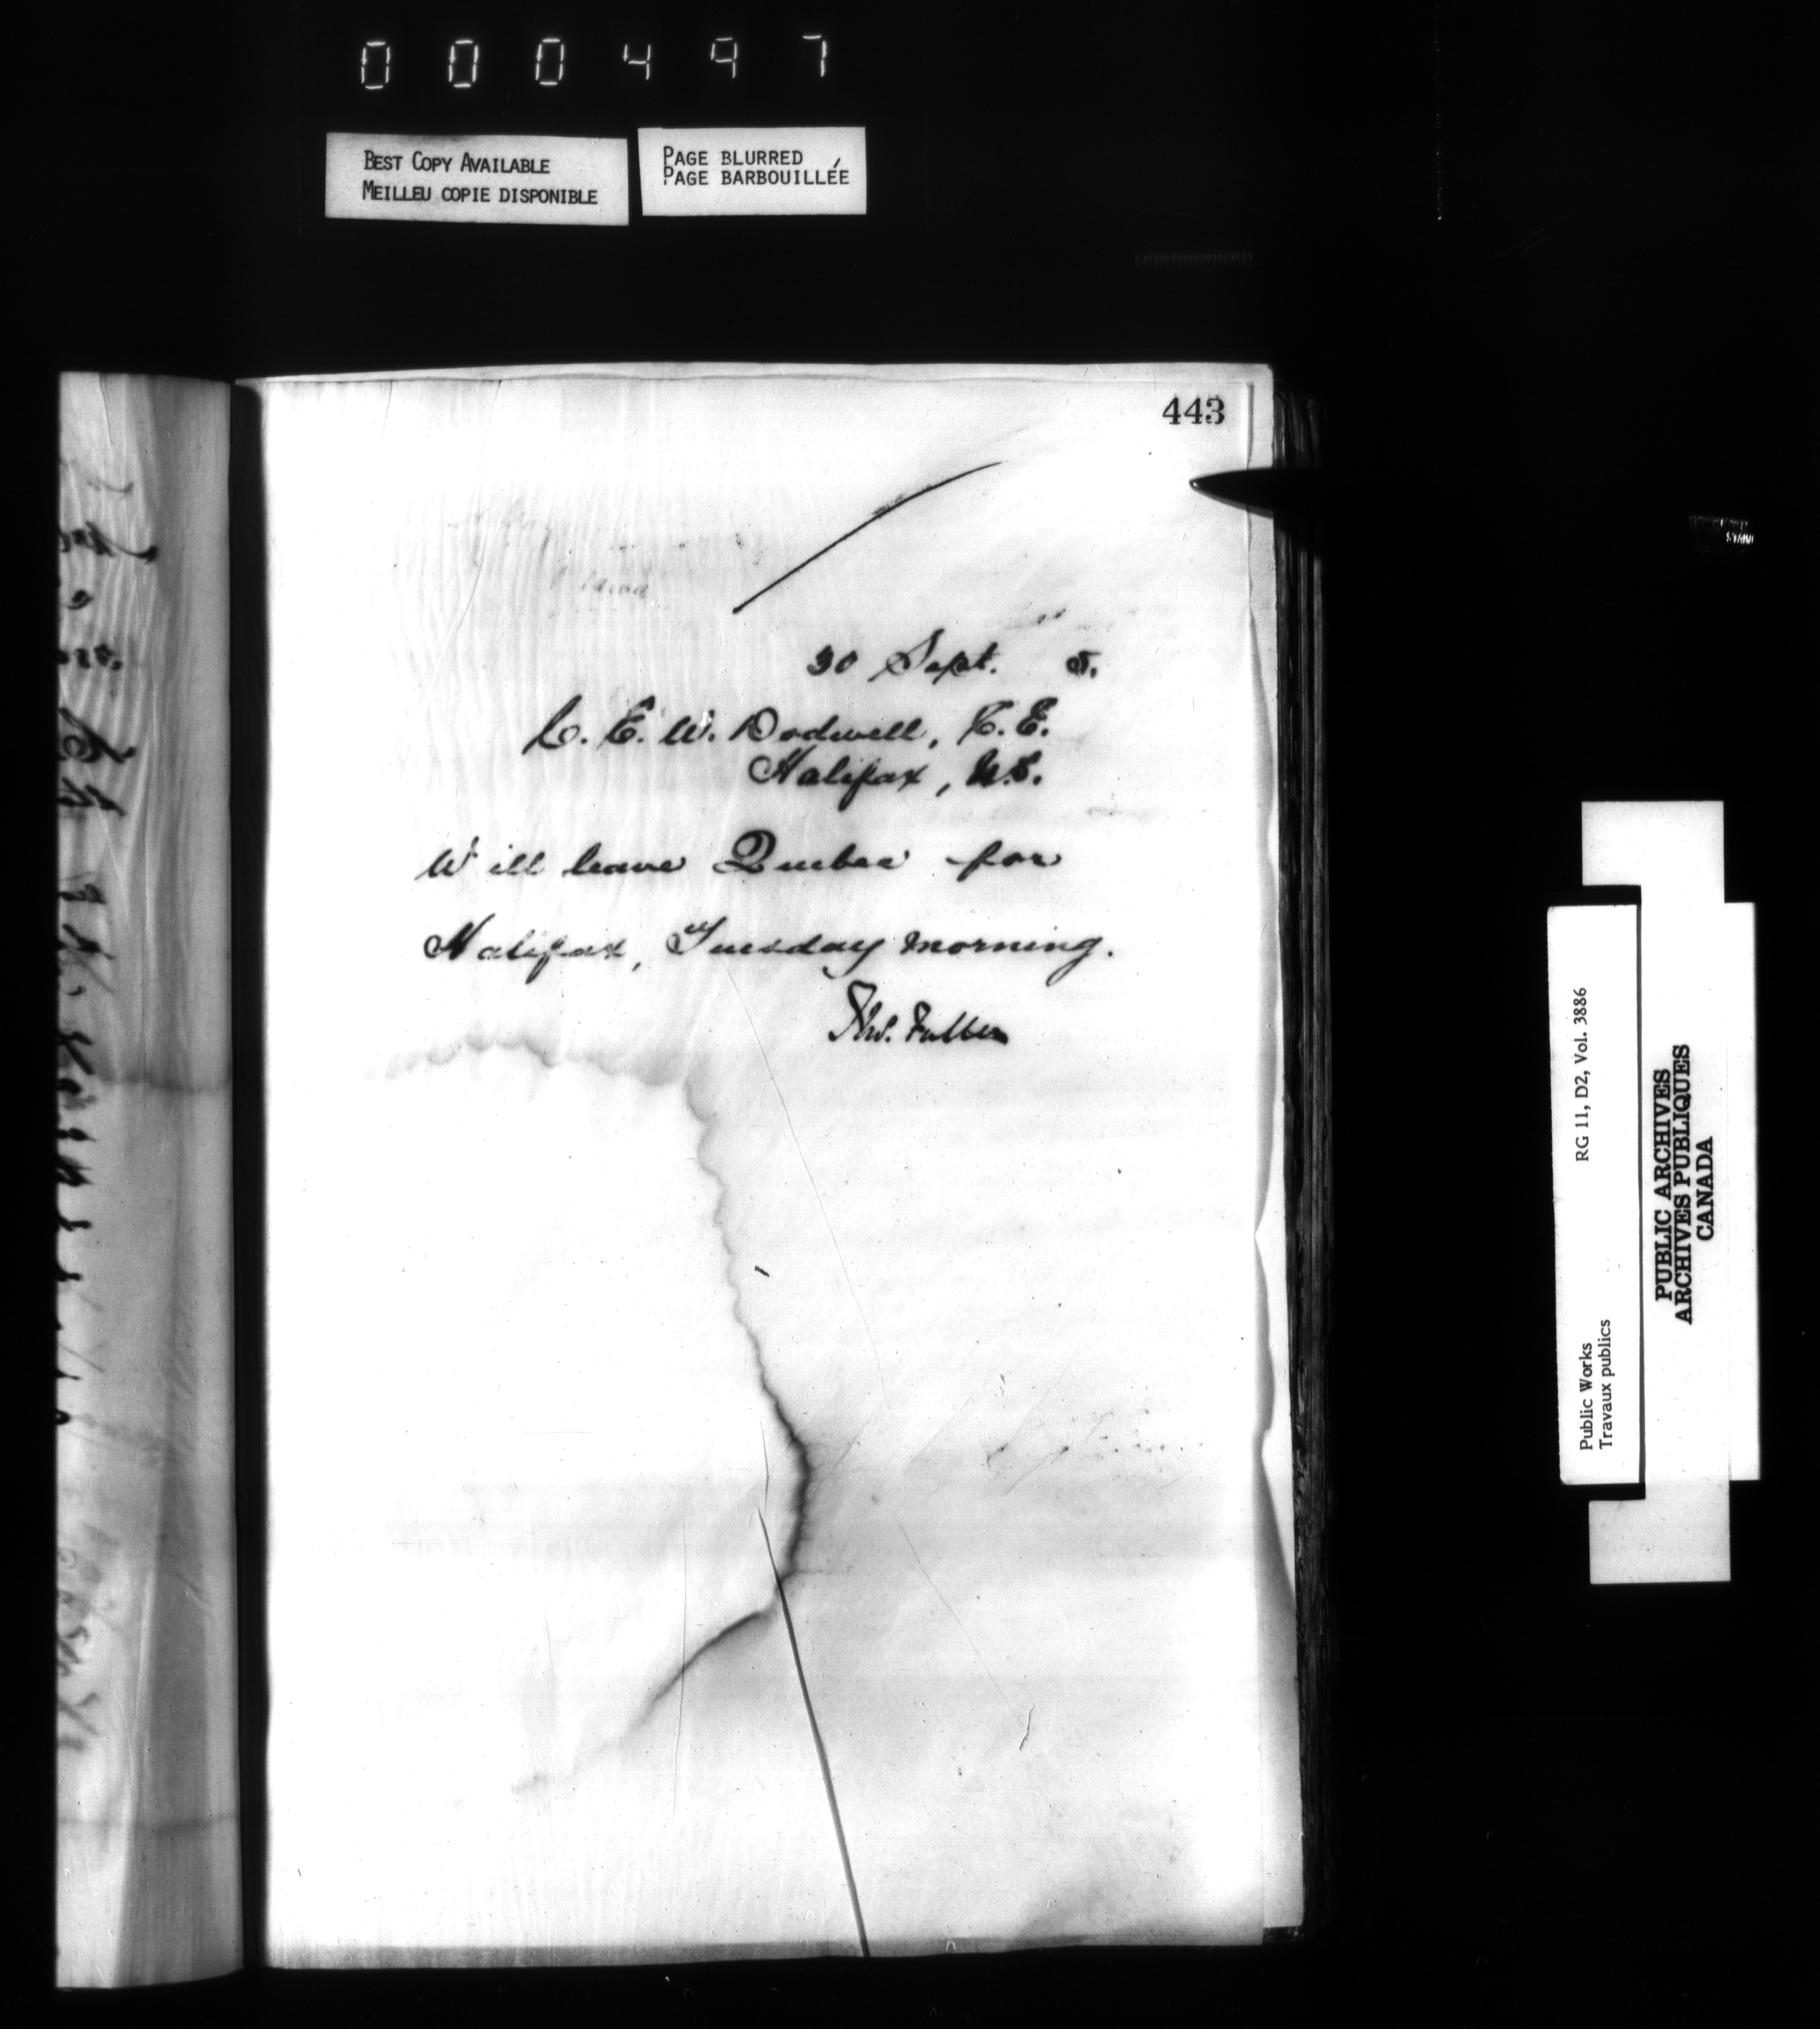 000497
BEST COPY AVAILABLE
MEILLEU COPIE DISPONIBLE
PAGE BLURRED
PAGE BARBOUILLÉE
443
30 Sept. 5.
C. E. W. Dodwell, C.E.
Halifax, N.S.
Will leave Quebec for
Halifax, Tuesday morning.
Thos. Fuller
Public Works
Travaux publics
RG 11, D2, Vol. 3886
PUBLIC ARCHIVES
ARCHIVES PUBLIQUES
CANADA